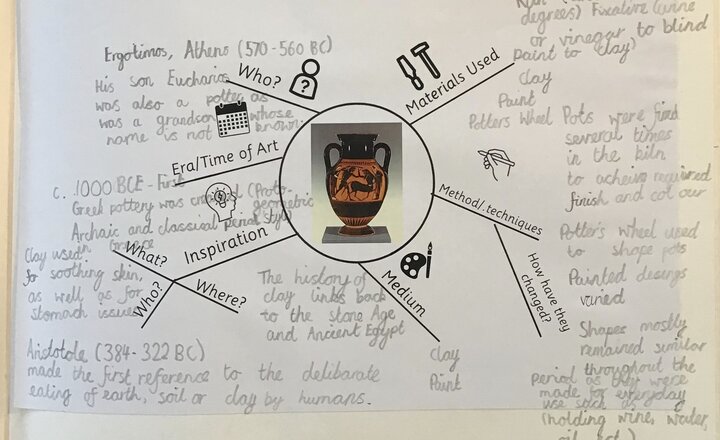 Ergotimos, Athens (570-560 BC)
His son Eucharios
was also a potter as
was a grandson whose
name is not known.
Who?
?
Era/Time of Art
c. 1000 BCE - First
Greek pottery was created (Proto-
geometric
Archaic and classical period style)
in Greece
Inspiration
What?
Who?
Where?
Clay used
for soothing skin,
as well as for
stomach issues
The history of
clay links back
to the stone Age
and Ancient Egypt
Aristotole (384-322 BC)
made the first reference to the deliberate
eating of earth, soil or clay by humans.
Materials Used
degrees) Fixative (urine
or vinegar to blind
paint to clay)
clay
Paint
Potters Wheel
Method/.techniques
Pots were fired
several times
in the kiln
to acheive required
finish and colour
Potter's wheel used
to shape pots
Painted designs
varied
How have they
changed?
Shapes mostly
remained similar
throughout the
period as they were
made for everyday
use such as
(holding wine, water,
Medium
clay
Paint